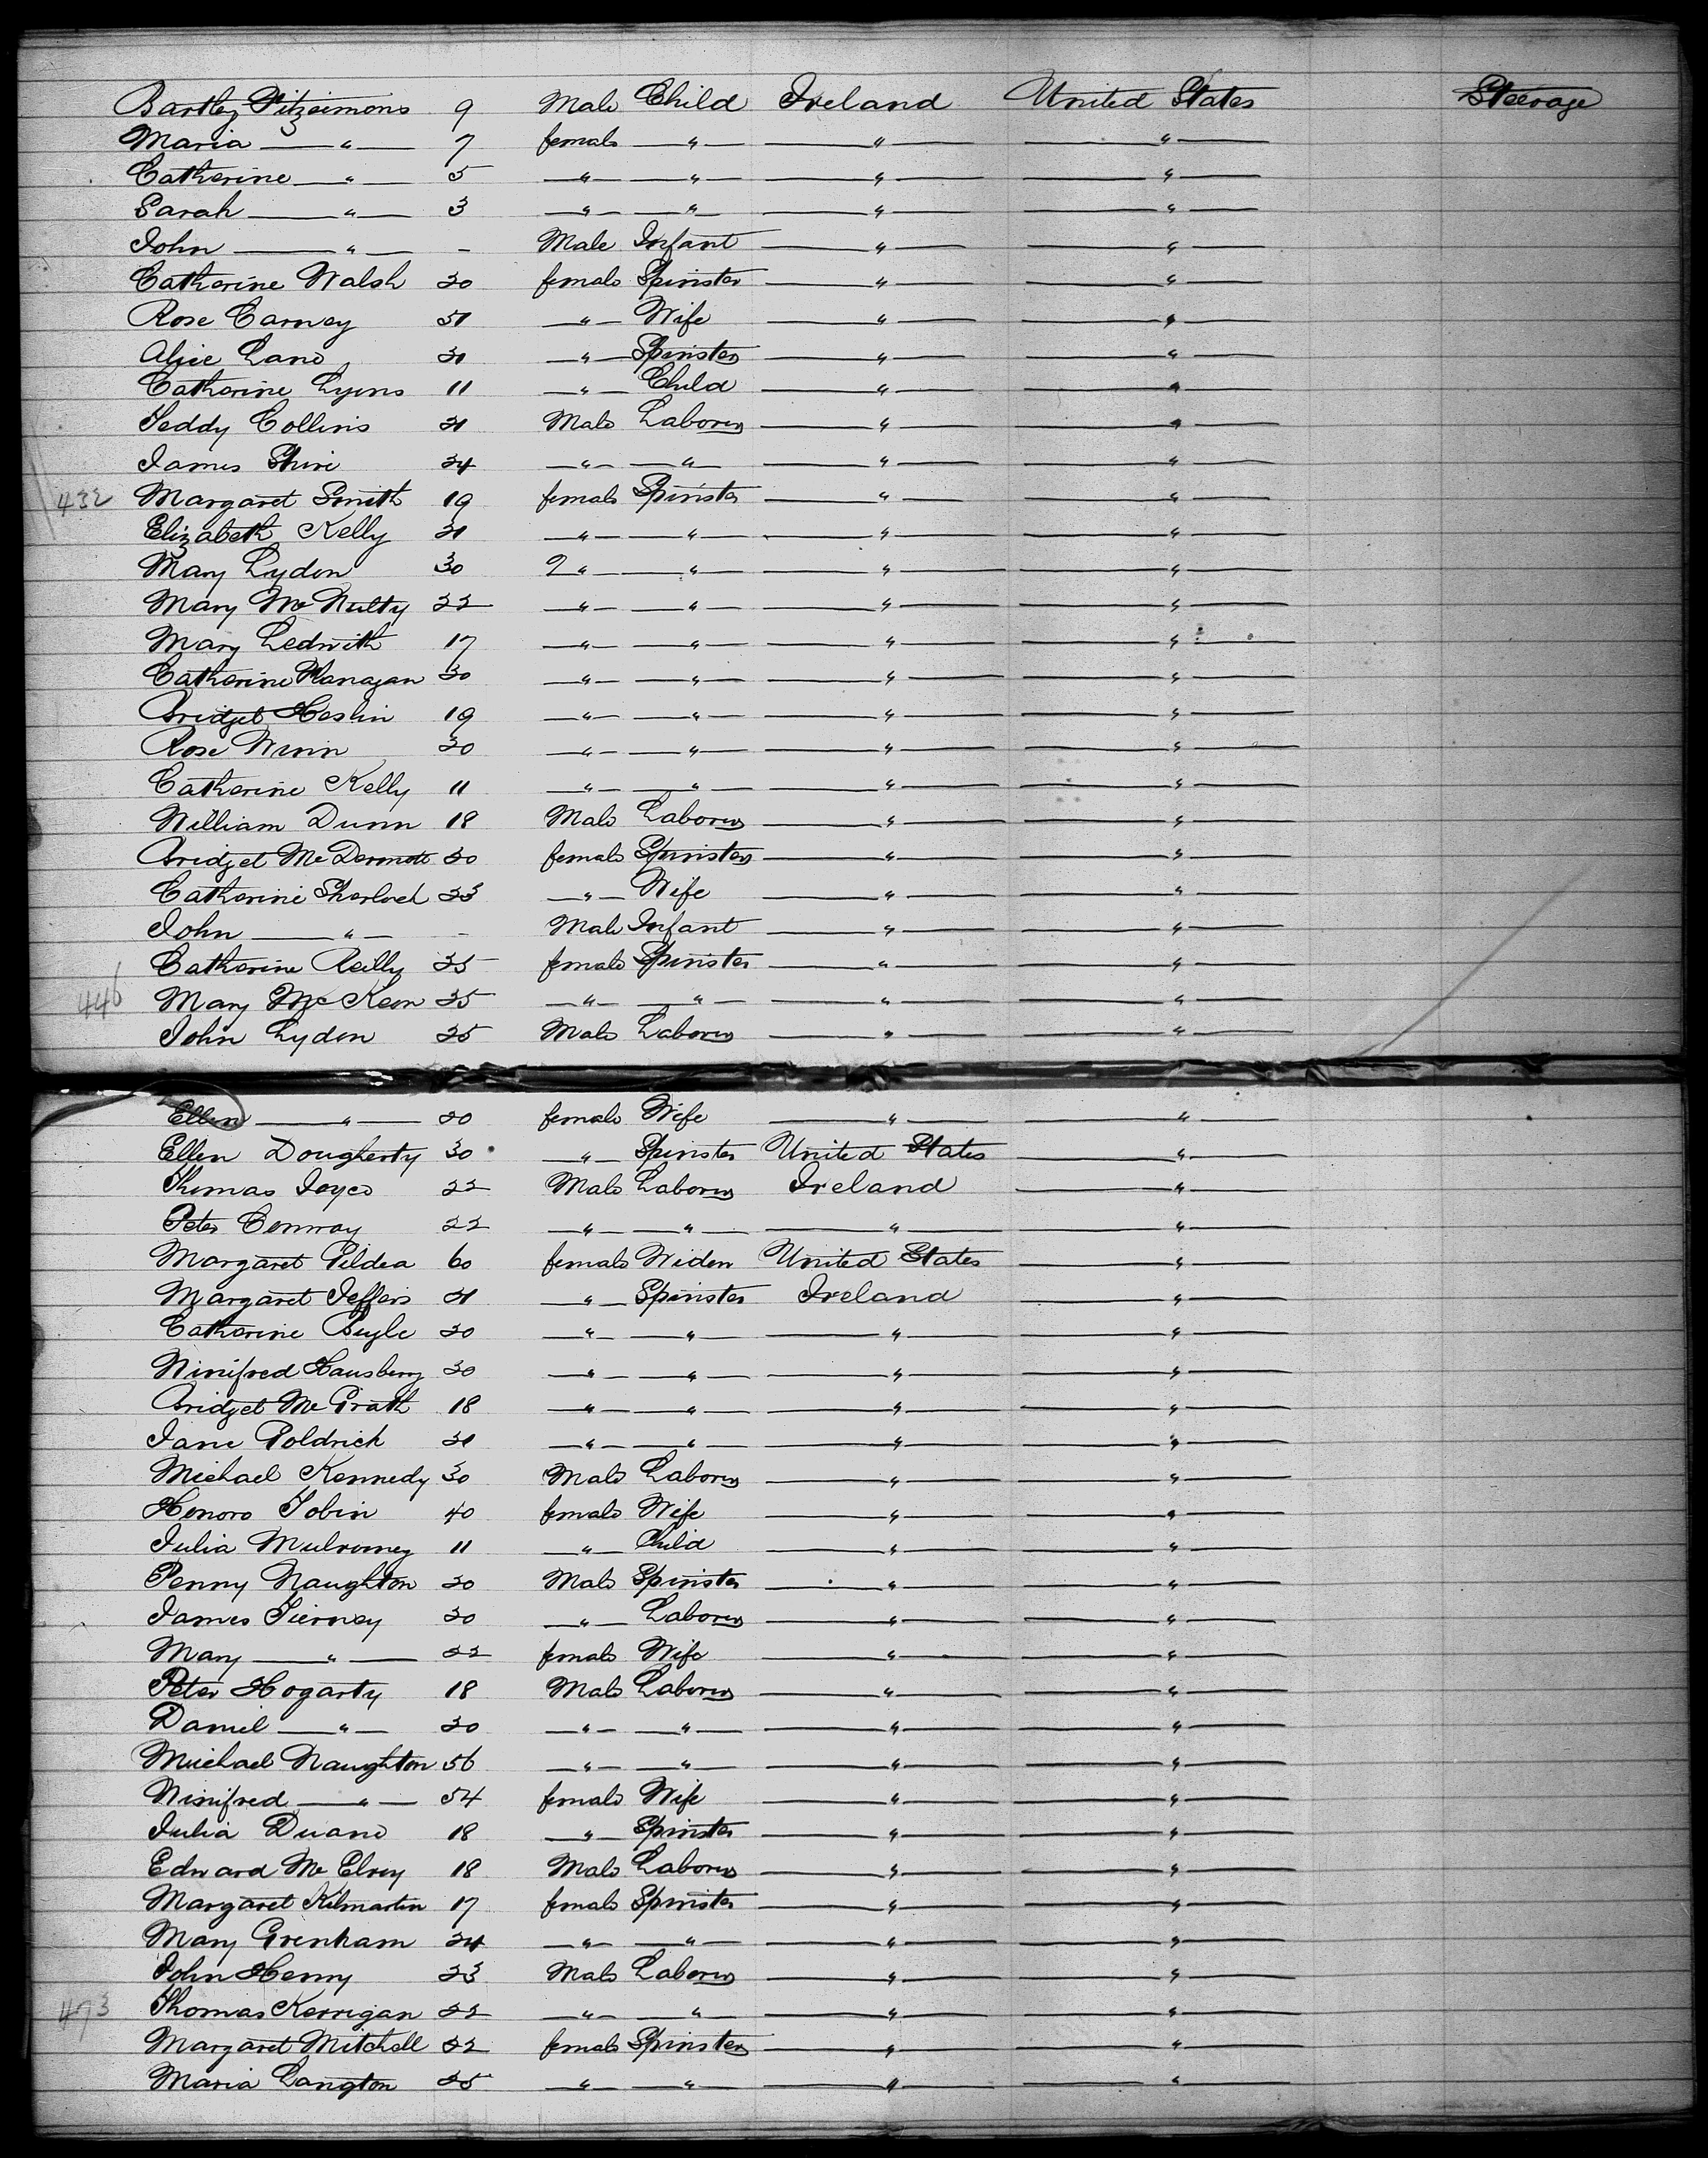 Bartley Fitzsimons 9 Male Child Ireland United States Steerage
Maria — " — 7 female — " — — " — — " —
Catherine — " — 5 — " — — " — — " — — " —
Sarah — " — 3 — " — — " — — " — — " —
John — " — - Male Infant — " — — " —
Catherine Walsh 20 female Spinster — " — — " —
Rose Carney — " — Wife — " — — " —
Alice Lane — " — Spinster — " — — " —
Catherine Lyons 11 — " — Child — " — — " —
Teddy Collins 21 Male Laborer — " — — " —
James 24 — " — — " — — " — — " —
432 Margaret Smith 19 female Spinster — " — — " —
Elizabeth Kelly 21 — " — — " — — " — — " —
Mary Lydon 30 " — — " — — " — — " —
Mary McNulty 22 — " — — " — — " — — " —
Mary Ledwith 17 — " — — " — — " — — " —
Catherine Flanagan 20 — " — — " — — " — — " —
Bridget Heslin 19 — " — — " — — " — — " —
Rose Winn 20 — " — — " — — " — — " —
Catherine Kelly 11 — " — — " — — " — — " —
William Dunn 18 Male Laborer — " — — " —
Bridget McDermott 20 female Spinster — " — — " —
Catherine Sherlock 23 — " — Wife — " — — " —
John — " — - Male Infant — " — — " —
Catherine Reilly 25 female Spinster — " — — " —
446 Mary McKeon 25 — " — — " — — " — — " —
John Lydon 25 Male Laborer — " — — " —
Ellen — " — 20 female Wife — " — — " —
Ellen Dougherty 30 — " — Spinster United States — " —
Thomas Joyce 22 Male Laborer Ireland — " —
Peter Conway 22 — " — — " — — " — — " —
Margaret Gildea 60 female Widow United States — " —
Margaret Jeffers 21 — " — Spinster Ireland — " —
Catherine Boyle 20 — " — — " — — " — — " —
Winifred Hansberry 20 — " — — " — — " — — " —
Bridget McGrath 18 — " — — " — — " — — " —
Jane Goldrick 21 — " — — " — — " — — " —
Michael Kennedy 30 Male Laborer — " — — " —
Honora Tobin 40 female Wife — " — — " —
Julia Mulroney 11 — " — Child — " — — " —
Penny Naughton 20 Male Spinster — " — — " —
James Tierney 30 — " — Laborer — " — — " —
Mary — " — 22 female Wife — " — — " —
Peter Hogarty 18 Male Laborer — " — — " —
Daniel — " — 20 — " — — " — — " — — " —
Michael Naughton 56 — " — — " — — " — — " —
Winifred — " — 54 female Wife — " — — " —
Julia Duane 18 — " — Spinster — " — — " —
Edward McElroy 18 Male Laborer — " — — " —
Margaret Kilmartin 17 female Spinster — " — — " —
Mary Grenham 24 — " — — " — — " — — " —
John Henry 23 Male Laborer — " — — " —
473 Thomas Kerrigan 22 — " — — " — — " — — " —
Margaret Mitchell 22 female Spinster — " — — " —
Maria Langton 25 — " — — " — — " — — " —